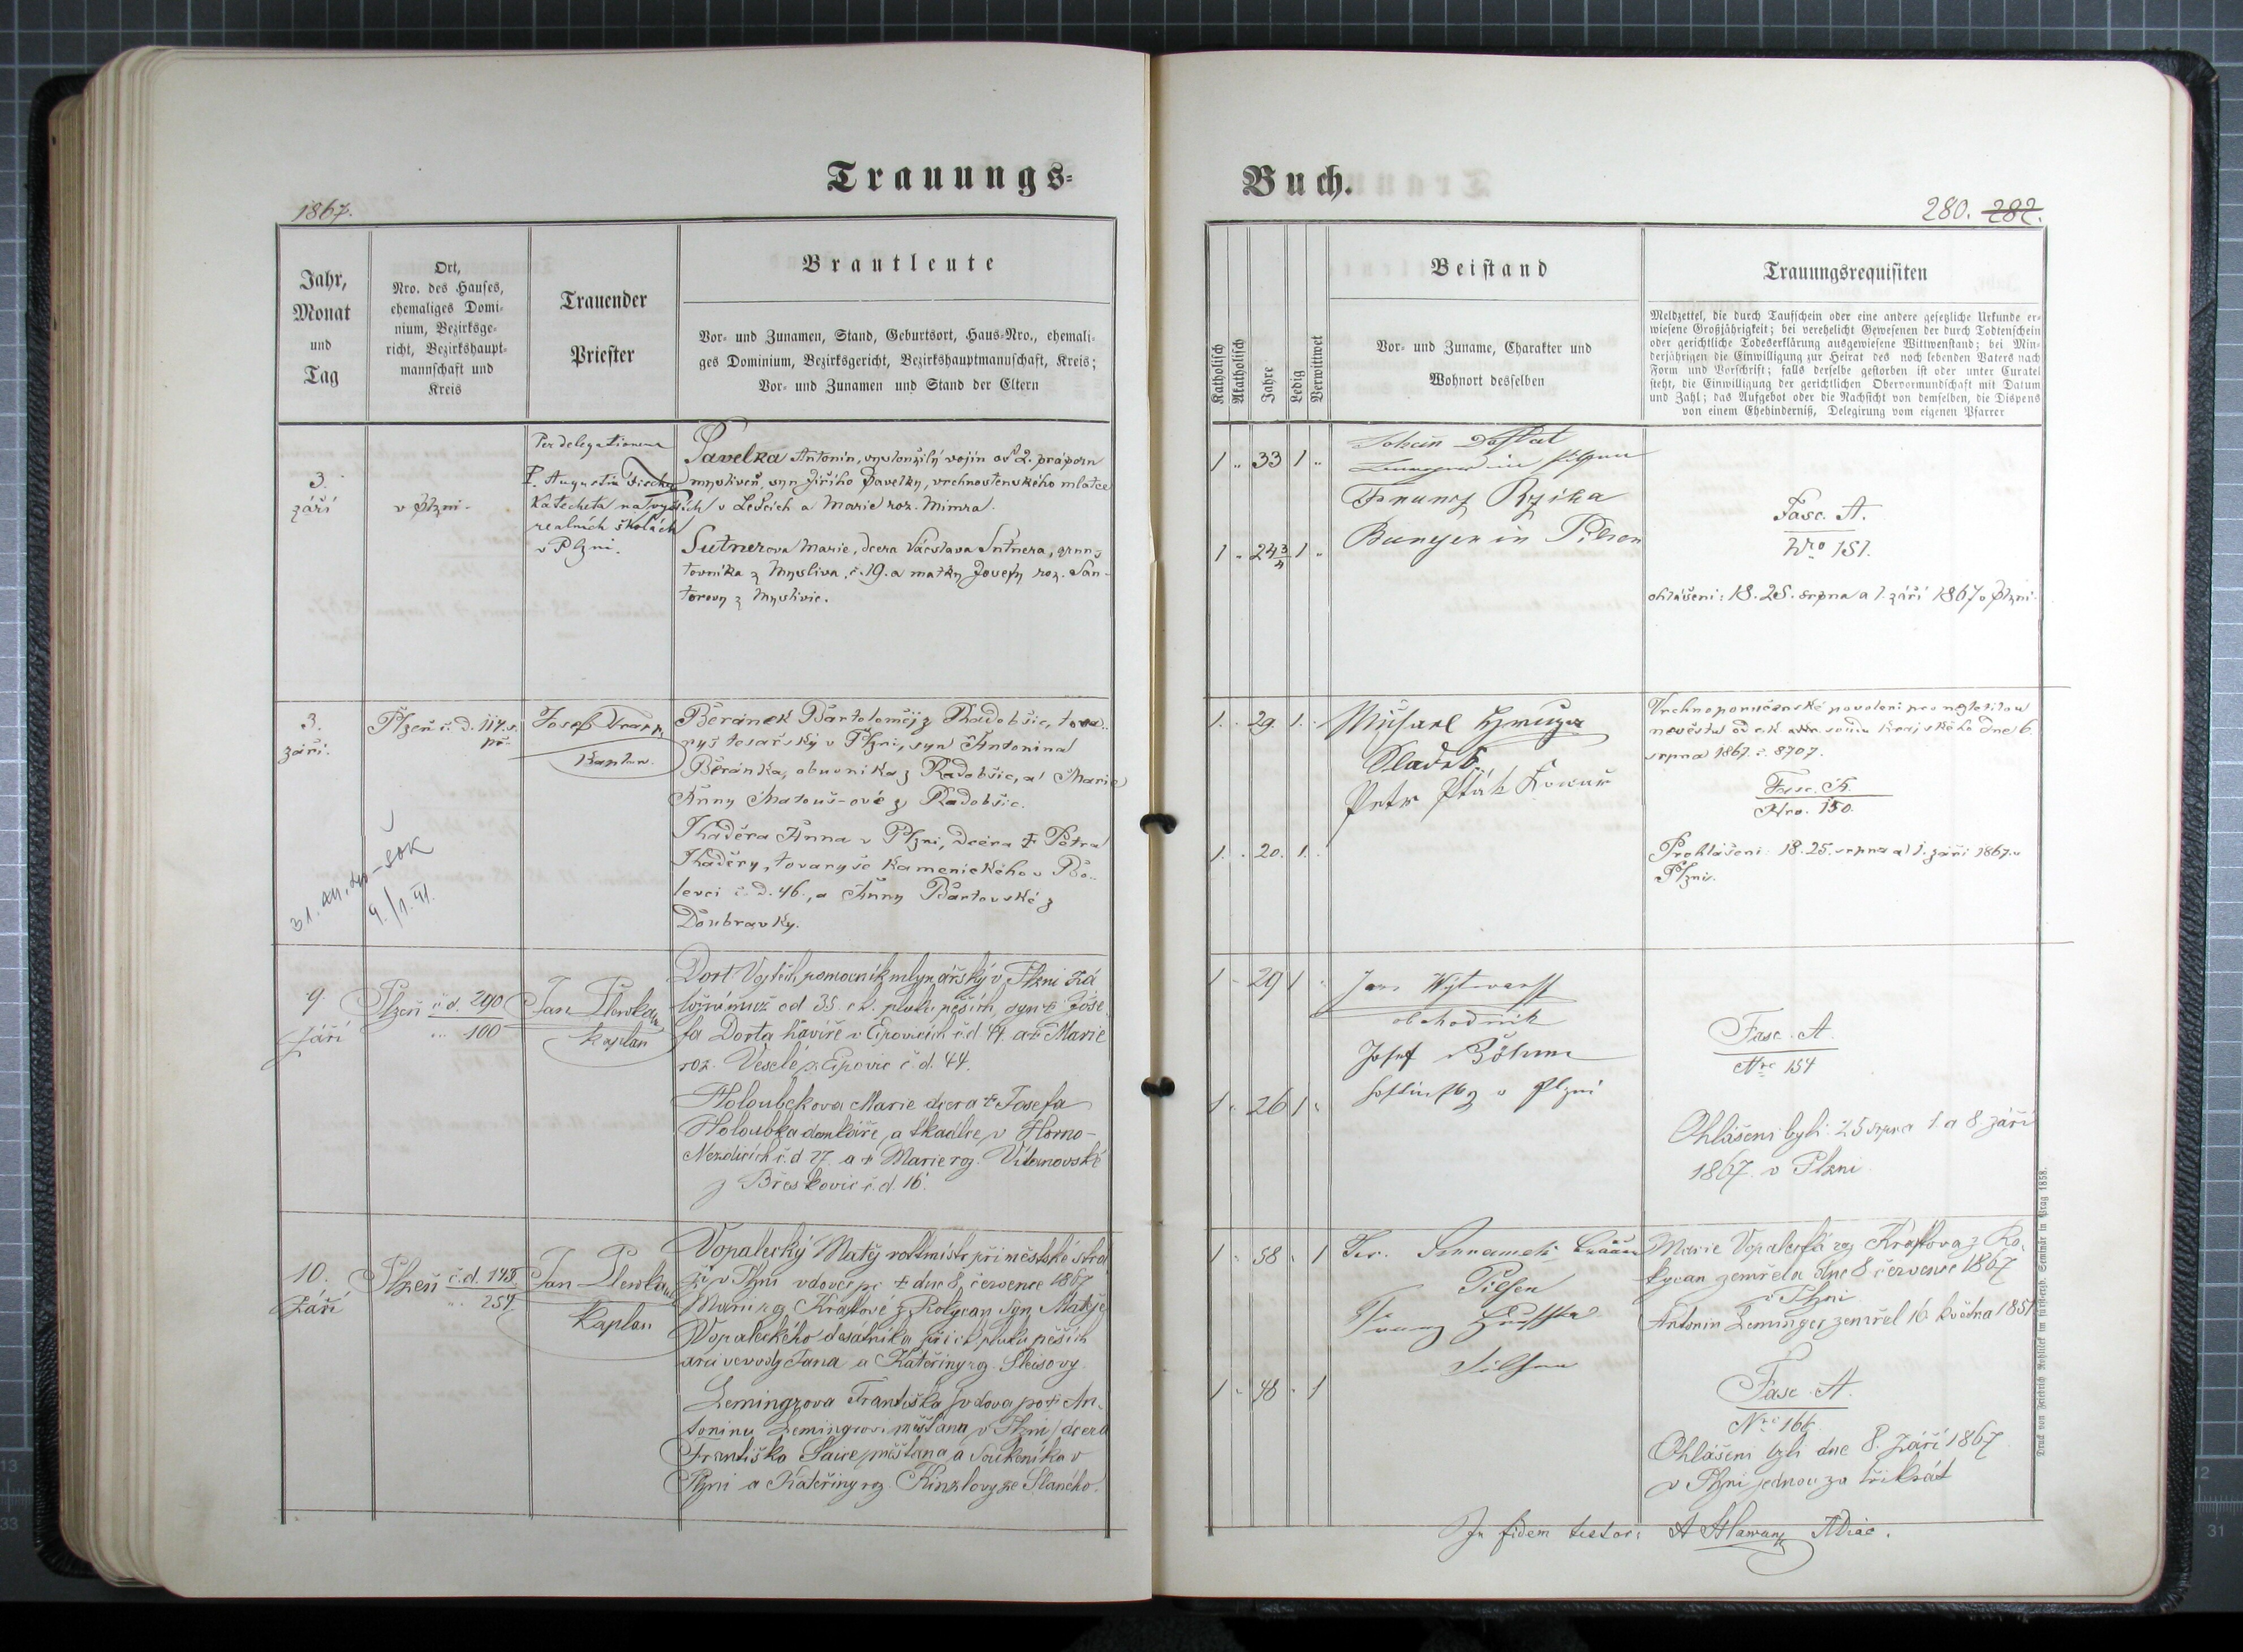 Trauungs-
1867.
Jahr,
Monat
und
Tag
Ort,
Nro. des Hauses,
ehemaliges Domi-
nium, Bezirksge-
richt, Bezirkshaupt-
mannschaft und
Kreis
Trauender
Priester
Brautleute
Vor- und Zunamen, Stand, Geburtsort, Haus-Nro., ehemali-
ges Dominium, Bezirksgericht, Bezirkshauptmannschaft, Kreis;
Vor- und Zunamen und Stand der Eltern
3.
září
v Plzni.
Per delegationem
P. Augustin
Katecheta na vyšších
realních školách
v Plzni.
Pavelka Antonín, vysloužilý vojín od 2. práporu
myslivců, syn Jiřího Pavelky, vrchnostenského mlatce
v Letcích a Marie roz. Mimra.
Sutnerova Marie, dcera Václava Sutnera, grun-
tovníka z Mysliva, č. 19. a matky Josefy roz. San-
torovy z Myslivic.
3.
září.
Plzeň č. d. 117. s.
př.
Josef
Kaplan.
Beránek Bartoloměj z Radobšic, tova-
ryš tesařský v Plzni, syn Antonína
Beránka, obuvníka z Radobšic, a Marie
Anny Matouš-ové z Radobšic.
Thaděra Anna v Plzni, dcera † Petra
Thaděry, tovaryše kamenického v Bo-
levci č. d. 46., a Anny Bartovské z
Doubravky.
9.
září
Plzeň č. d. 290
" 100
Jan Plewka
Kaplan
Dort Vojtěch pomocník mlynářský v Plzni zá
ložní muž od 35 c. k. pluku pěších, syn † Jose-
fa Dorta havíře v Eipovicích č. d 44. a † Marie
roz. Veselé z Eipovic č. d. 44.
Holoubekova Marie dcera † Josefa
Holoubka domkáře, a tkadlce, v Horno-
Nezdicích č. d 27. a † Marie roz. Vítanovské
z Břeskovic č. d. 16.
10.
září
Plzeň č. d. 148
" 257
Jan Plewka
Kaplan
Vopalecký Matěj rottmistr při městské strá
ži v Plzni vdovec po † dne 8. července 1867
Marii roz. Kraftové z Rokycan syn Matěje
Vopaleckého desátníka při c. k. pluku pěších
arcivevody Jana a Kateřiny roz. Sleisovy.
Lemingrova Františka vdova po † An-
tonínu Lemingrovi měšťanu v Plzni dcera
Františka Saice měšťana a soukeníka v
Plzni a Kateřiny roz. Kinzlovy ze Slaného.
Buch.
280. 282.
Katholisch
Akatholisch
Jahre
Ledig
Verwittwet
Beistand
Vor- und Zuname, Charakter und
Wohnort desselben
Trauungsrequisiten
Meldzettel, die durch Taufschein oder eine andere gesetzliche Urkunde er-
wiesene Großjährigkeit; bei verehelicht Gewesenen der durch Todtenschein
oder gerichtliche Todeserklärung ausgewiesene Wittwenstand; bei Min-
derjährigen die Einwilligung zur Heirat des noch lebenden Vaters nach
Form und Vorschrift; falls derselbe gestorben ist oder unter Curatel
steht, die Einwilligung der gerichtlichen Obervormundschaft mit Datum
und Zahl; das Aufgebot oder die Nachsicht von demselben, die Dispens
von einem Ehehinderniß, Delegirung vom eigenen Pfarrer
1 " 33 1 "
1 " 24 3/4 1 "
Franz
Bürger in Pilsen
Fasc. A.
Nro 151.
ohlášeni: 18. 25. srpna a 1. září 1867 v Plzni.
1. . 29. 1. .
1. . 20. 1. .
Michael
Sladek
Petr Pták Kovář
Vrchnoporučenské povolení pro nezletilou
nevěstu od c. k. soudu krajského dne 6.
srpna 1867. č. 8707.
Fasc. A.
Nro. 150.
Prohlášeni 18. 25. srpna a 1. září 1867. v
Plzni.
1 " 29 1 "
1 " 26 1 "
Jan
obchodník
Josef Böhm
v Plzni
Fasc. A
Nro 154
Ohlášeni byli: 25 srpna 1. a 8. září
1867. v Plzni
1 " 58 " 1
1 " 48 " 1
Pilsen
Franz
Pilsen
Marie Vopalecká roz Kraftova z Ro-
kycan zemřela dne 8 července 1867
v Plzni
Antonin Leminger zemřel 16. května 1857
Fasc. A.
Nro 166.
Ohlášeni byli dne 8. září 1867
v Plzni jednou za třikrát
In fidem testor:
Druck von Friedrich Rohliček im fürsterzb. Seminär in Prag 1858.